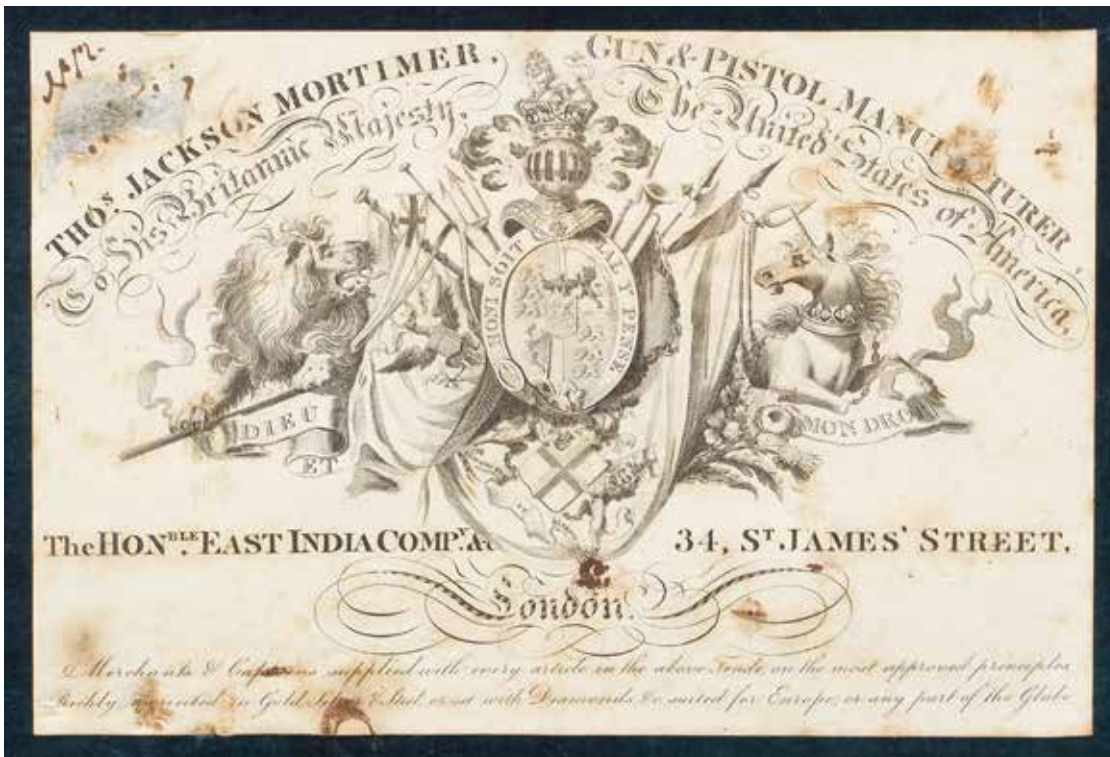 THOS. JACKSON MORTIMER, GUN & PISTOL MANUF TURER,
To His Britannic Majesty, The United States of America,
HONI SOIT AL Y PENSE
DIEU
ET
MON DROIT
The HONBLE. EAST INDIA COMPY. &c
34, ST. JAMES' STREET.
London.
Merchants & Captains supplied with every article in the above Trade, on the most approved principles
Richly mounted in Gold, Silver & Steel, or set with Diamonds &c suited for Europe, or any part of the Globe